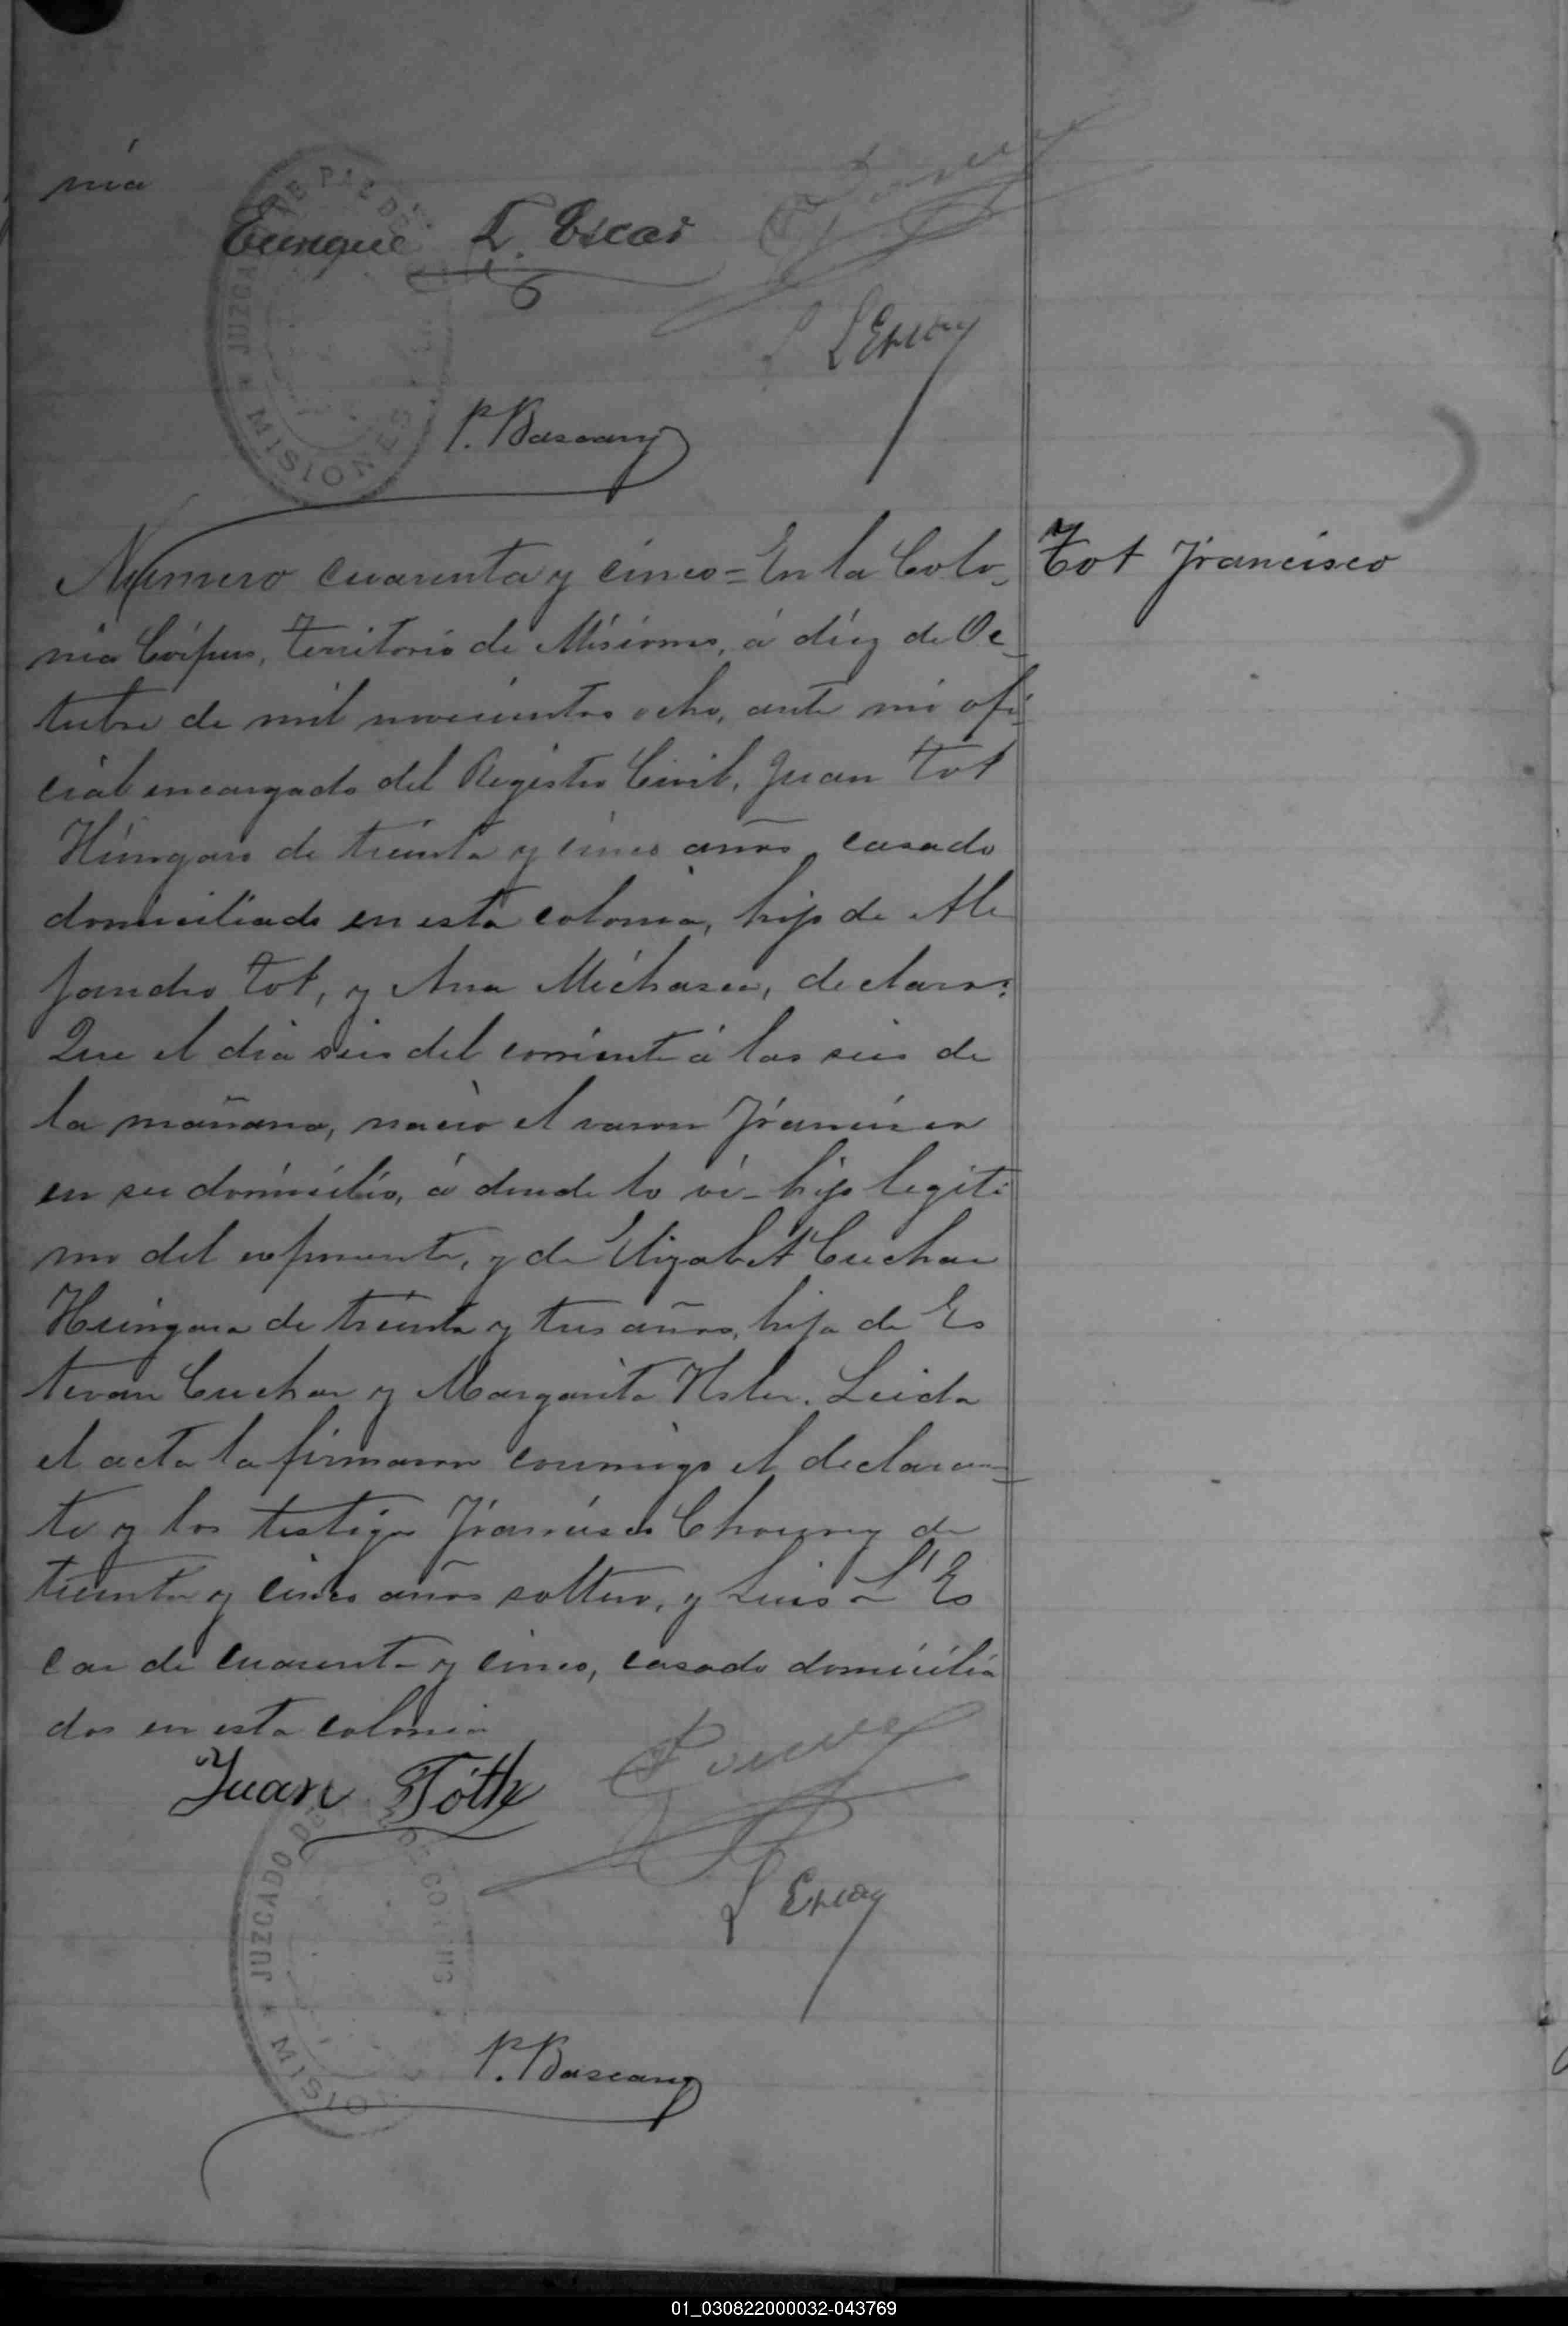 nia
Enrique L. Escar
L Escary
P. Bascary
JUZGADO DE PAZ DE
MISIONES
Numero cuarenta y cinco = En la Colo-
nia Córpus, territorio de Misiones, á diez de Oc-
tubre de mil novecientos ocho, ante mi ofi-
cial encargado del Registro Civil, Juan Tot
Húngaro de treinta y cinco años, casado
domiciliado en esta colonia, hijo de Ale
jandro Tot, y Ana Michasea, declaro:
Que el dia seis del corriente á las seis de
la mañana, nacio el varon Francisco
en su domicilio, á donde lo ví - hijo legíti
mo del esponente, y de Elizabet Cuchar
Húngara de treinta y tres años, hija de Es
tevan Cuchar y Margarita Hsler. Leida
el acta la firmaron conmigo el declaran-
te y los testigos Francisco Choury de
treinta y cinco años soltero, y Luis L'Es
car de cuarenta y cinco, casado domicilia
dos en esta colonia
Tot Francisco
Juan Tóth
L Escary
JUZGADO DE
CORPUS
MISIO
P. Bascary
01_030822000032-043769